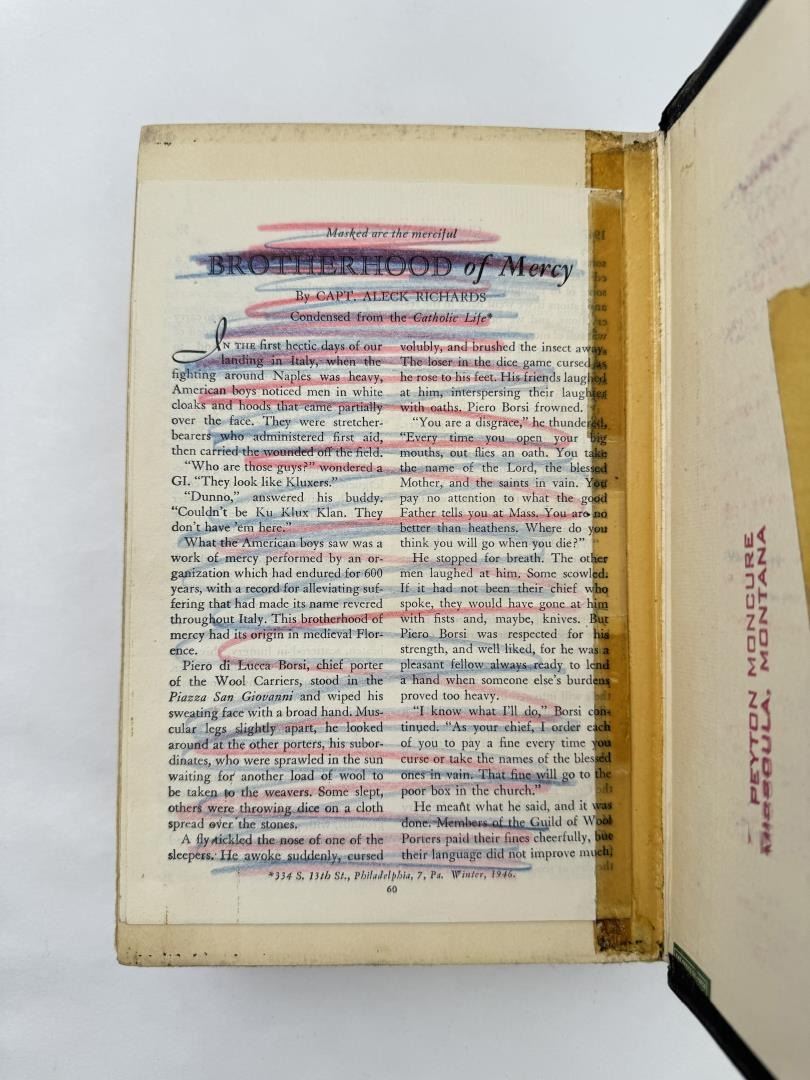 Masked are the merciful
BROTHERHOOD of Mercy
By CAPT. ALECK RICHARDS
Condensed from the Catholic Life*
IN THE first hectic days of our
landing in Italy, when the
fighting around Naples was heavy,
American boys noticed men in white
cloaks and hoods that came partially
over the face. They were stretcher-
bearers who administered first aid,
then carried the wounded off the field.
“Who are those guys?” wondered a
GI. “They look like Kluxers.”
“Dunno,” answered his buddy.
“Couldn't be Ku Klux Klan. They
don't have 'em here.”
What the American boys saw was a
work of mercy performed by an or-
ganization which had endured for 600
years, with a record for alleviating suf-
fering that had made its name revered
throughout Italy. This brotherhood of
mercy had its origin in medieval Flor-
ence.
Piero di Lucca Borsi, chief porter
of the Wool Carriers, stood in the
Piazza San Giovanni and wiped his
sweating face with a broad hand. Mus-
cular legs slightly apart, he looked
around at the other porters, his subor-
dinates, who were sprawled in the sun
waiting for another load of wool to
be taken to the weavers. Some slept,
others were throwing dice on a cloth
spread over the stones.
A fly tickled the nose of one of the
sleepers. He awoke suddenly, cursed
volubly, and brushed the insect away.
The loser in the dice game cursed as
he rose to his feet. His friends laughed
at him, interspersing their laughter
with oaths. Piero Borsi frowned.
“You are a disgrace,” he thundered,
“Every time you open your big
mouths, out flies an oath. You take
the name of the Lord, the blessed
Mother, and the saints in vain. You
pay no attention to what the good
Father tells you at Mass. You are no
better than heathens. Where do you
think you will go when you die?”
He stopped for breath. The other
men laughed at him. Some scowled.
If it had not been their chief who
spoke, they would have gone at him
with fists and, maybe, knives. But
Piero Borsi was respected for his
strength, and well liked, for he was a
pleasant fellow always ready to lend
a hand when someone else's burdens
proved too heavy.
“I know what I'll do,” Borsi con-
tinued. “As your chief, I order each
of you to pay a fine every time you
curse or take the names of the blessed
ones in vain. That fine will go to the
poor box in the church.”
He meant what he said, and it was
done. Members of the Guild of Wool
Porters paid their fines cheerfully, but
their language did not improve much.
*334 S. 13th St., Philadelphia, 7, Pa. Winter, 1946.
60
PEYTON MONCURE
MISSOULA, MONTANA